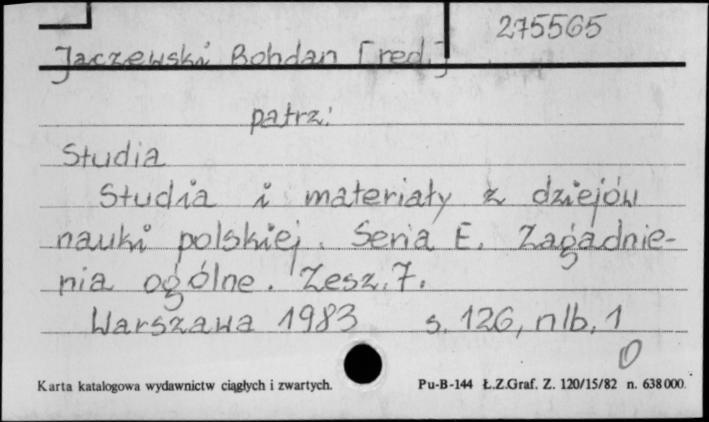 275565
Jaczewski Bohdan [red.]
patrz:
Studia
Studia i materiały z dziejów
nauki polskiej. Seria E. Zagadnie-
nia ogólne. Zesz. 7.
Warszawa 1983 s. 126, nlb. 1
Karta katalogowa wydawnictw ciągłych i zwartych. Pu-B-144 Ł.Z.Graf. Z. 120/15/82 n. 638000.